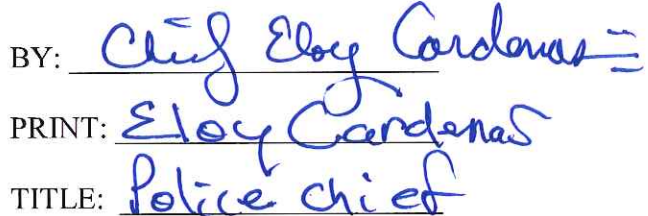 BY: Chief Eloy Cardenas
PRINT: Eloy Cardenas
TITLE: Police chief